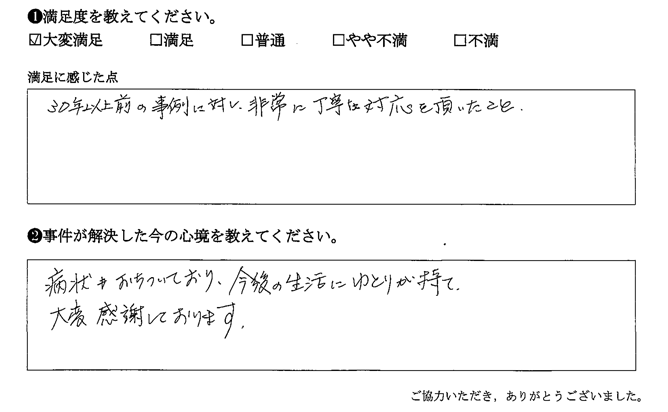 ❶満足度を教えてください。
☑大変満足 □満足 □普通 □やや不満 □不満
満足に感じた点
30年以上前の事例に対し、非常に丁寧な対応を頂いたこと.
❷事件が解決した今の心境を教えてください。
病状もおちついており、今後の生活にゆとりが持て、
大変感謝しております.
ご協力いただき、ありがとうございました。